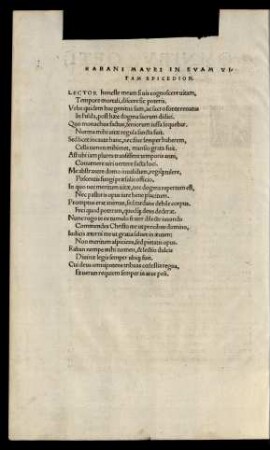 RABANI MAURI IN SVAM VI-
TAM EPICEDION.
LECTOR honeste meam si uis cognoscere uitam,
Tempore mortali, discere sic poteris.
Vrbe quidem hac genitus sum, ac sacro fonte renatus
In hac post hæc dogma sacrum didici.
Quo monachus factus, seniorum iussa sequebar.
Norma mihi uitæ regula sancta fuit.
Sed licet incaute hanc, nec fixe semper haberem,
Cella tamen mihimet, mansio grata fuit.
Ast ubi iam plures transissent temporis anni,
Conuenere uiri uertere facta loci.
Me abstraxere domo inualidum, regique tulere,
Poscentes fungi præsulis officio.
In quo nec meritum uitæ, nec dogma repertum est,
Nec pastoris opus iure bene placitum.
Promptus erat animus, sed tardans debile corpus.
Feci quod poteram, quodque deus dederat.
Nunc rogo te ex tumulo frater dilecte iuuando
Commendes Christo me ut precibus domino,
Iudicis æterni me ut gratia saluet in æuum:
Non meritum aspiciens, sed pietatis opus.
Raban nempe mihi nomen, & lectio dulcis
Diuinæ legis semper ubique fuit.
Cui deus omnipotens tribuas cœlestia regna,
Et ueram requiem semper in arce poli.